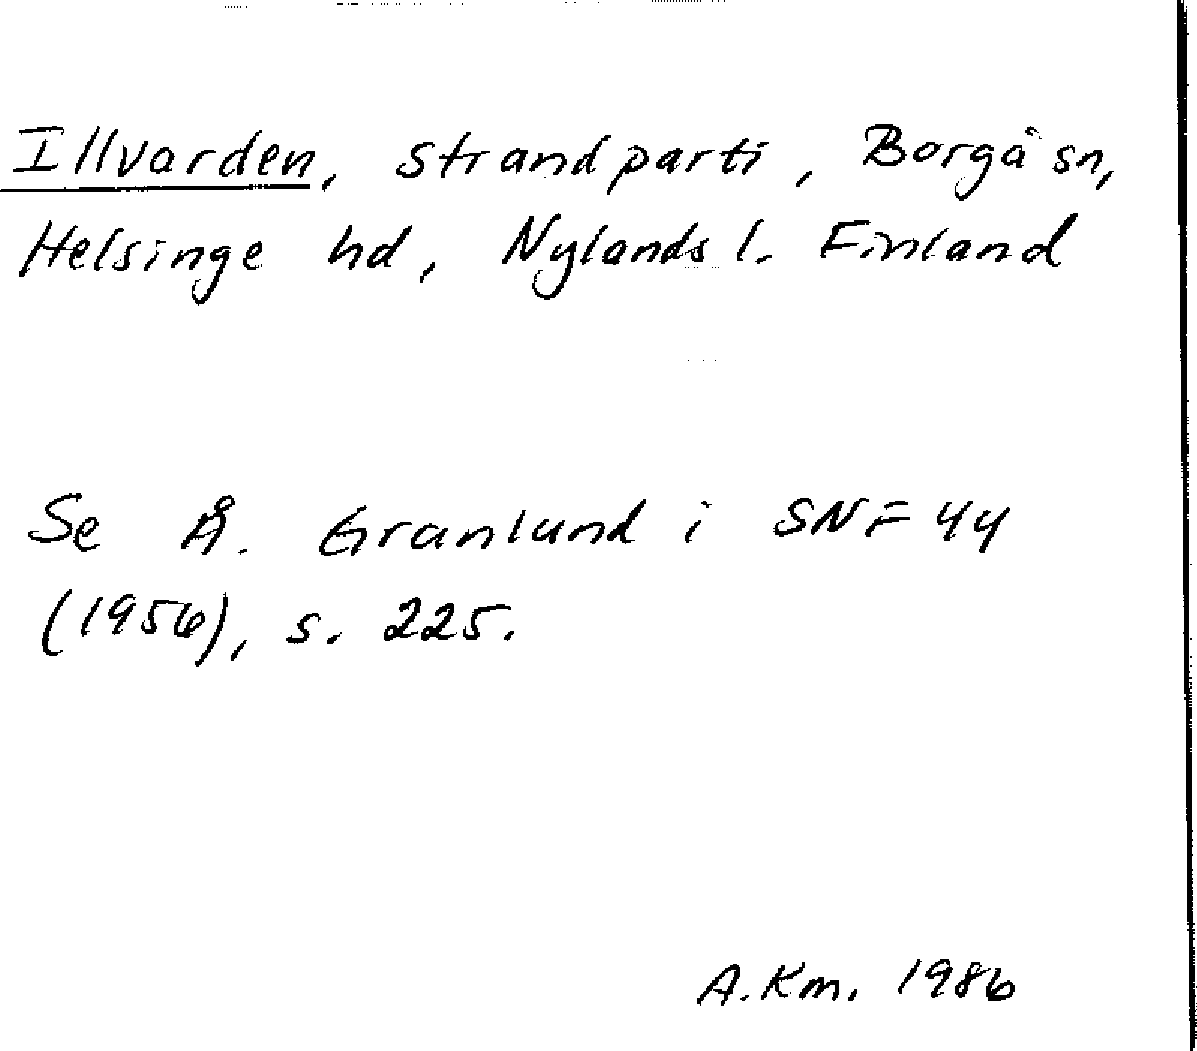 Illvarden, strandparti, Borgå sn,
Helsinge hd, Nylands l. Finland
Se Å. Granlund i SNF 44
(1956), s. 225.
A.Km. 1986